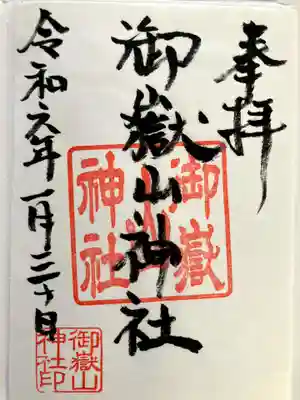 奉拝
御嶽山神社
令和元年一月三十日
御嶽山
神社
御嶽山
神社印